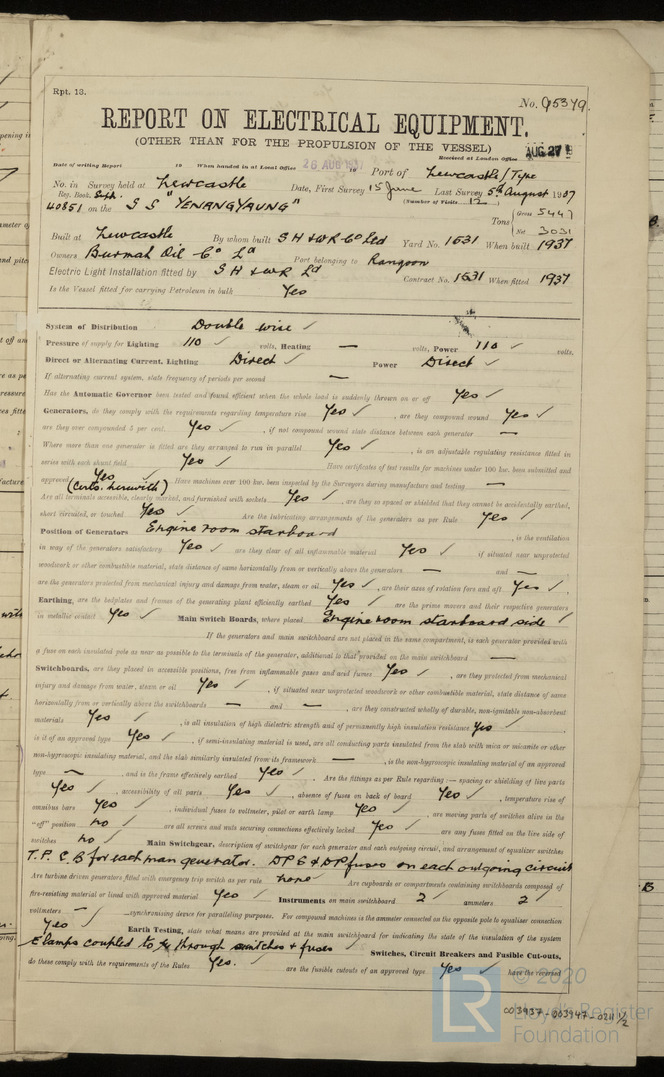 Rpt. 13.
No. 95379.
REPORT ON ELECTRICAL EQUIPMENT.
(OTHER THAN FOR THE PROPULSION OF THE VESSEL)
Received at London Office AUG 27
Date of writing Report 19 When handed in at Local Office 26 AUG 1937 19 Port of Newcastle/Tyne
No. in Survey held at Newcastle Date, First Survey 15 June Last Survey 5th August 1937
Reg. Book. Supt. (Number of Visits 12)
40851 on the S S "YENANGYAUNG" Tons Gross 5447 Net 3031
Built at Newcastle By whom built S H & W R Co Ltd Yard No. 1531 When built 1937
Owners Burmah Oil Co Ld Port belonging to Rangoon
Electric Light Installation fitted by S H & W R Ld Contract No. 1531 When fitted 1937
Is the Vessel fitted for carrying Petroleum in bulk Yes
System of Distribution Double wire ✓
Pressure of supply for Lighting 110 ✓ volts, Heating — volts, Power 110 ✓ volts.
Direct or Alternating Current, Lighting Direct ✓ Power Direct ✓
If alternating current system, state frequency of periods per second —
Has the Automatic Governor been tested and found efficient when the whole load is suddenly thrown on or off Yes ✓
Generators, do they comply with the requirements regarding temperature rise Yes ✓, are they compound wound Yes ✓
are they over compounded 5 per cent. Yes ✓, if not compound wound state distance between each generator —
Where more than one generator is fitted are they arranged to run in parallel Yes ✓, is an adjustable regulating resistance fitted in
series with each shunt field Yes ✓ Have certificates of test results for machines under 100 kw. been submitted and
approved Yes ✓ (Certs. herewith) Have machines over 100 kw. been inspected by the Surveyors during manufacture and testing —
Are all terminals accessible, clearly marked, and furnished with sockets Yes ✓, are they so spaced or shielded that they cannot be accidentally earthed,
short circuited, or touched Yes ✓ Are the lubricating arrangements of the generators as per Rule Yes ✓
Position of Generators Engine room starboard, is the ventilation
in way of the generators satisfactory Yes ✓ are they clear of all inflammable material Yes ✓ if situated near unprotected
woodwork or other combustible material, state distance of same horizontally from or vertically above the generators — and —
are the generators protected from mechanical injury and damage from water, steam or oil Yes ✓, are their axes of rotation fore and aft Yes ✓.
Earthing, are the bedplates and frames of the generating plant efficiently earthed Yes ✓ are the prime movers and their respective generators
in metallic contact Yes ✓ Main Switch Boards, where placed Engine room starboard side ✓
If the generators and main switchboard are not placed in the same compartment, is each generator provided with
a fuse on each insulated pole as near as possible to the terminals of the generator, additional to that provided on the main switchboard —
Switchboards, are they placed in accessible positions, free from inflammable gases and acid fumes Yes ✓, are they protected from mechanical
injury and damage from water, steam or oil Yes ✓, if situated near unprotected woodwork or other combustible material, state distance of same
horizontally from or vertically above the switchboards — and —, are they constructed wholly of durable, non-ignitable non-absorbent
materials Yes ✓, is all insulation of high dielectric strength and of permanently high insulation resistance Yes ✓.
is it of an approved type Yes ✓, if semi-insulating material is used, are all conducting parts insulated from the slab with mica or micanite or other
non-hygroscopic insulating material, and the slab similarly insulated from its framework —, is the non-hygroscopic insulating material of an approved
type —, and is the frame effectively earthed Yes ✓. Are the fittings as per Rule regarding :— spacing or shielding of live parts
Yes ✓, accessibility of all parts Yes ✓, absence of fuses on back of board Yes ✓, temperature rise of
omnibus bars Yes ✓, individual fuses to voltmeter, pilot or earth lamp Yes ✓, are moving parts of switches alive in the
"off" position no ✓ are all screws and nuts securing connections effectively locked Yes ✓ are any fuses fitted on the live side of
switches no ✓ Main Switchgear, description of switchgear for each generator and each outgoing circuit, and arrangement of equalizer switches
T.P.C.B for each main generator. DPS & DP fuses on each outgoing circuit
Are turbine driven generators fitted with emergency trip switch as per rule none ✓ Are cupboards or compartments containing switchboards composed of
fire-resisting material or lined with approved material Yes ✓ Instruments on main switchboard 2 ✓ ammeters 2 ✓
voltmeters — synchronising device for paralleling purposes. For compound machines is the ammeter connected on the opposite pole to equaliser connection
Yes ✓ Earth Testing, state what means are provided at the main switchboard for indicating the state of the insulation of the system
E lamps coupled to through switches & fuses ✓ Switches, Circuit Breakers and Fusible Cut-outs,
do these comply with the requirements of the Rules Yes. are the fusible cutouts of an approved type Yes ✓ have the reversed
© 2020
LR Lloyd's Register
Foundation
003937-003947-0211 1/2